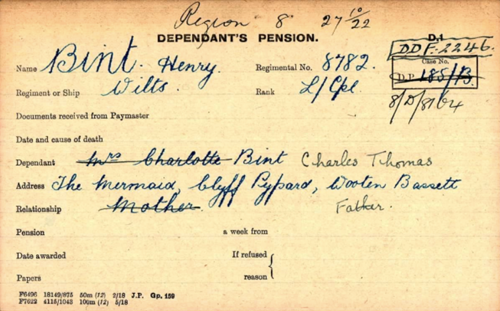 Region 8 27 10/22
DEPENDANT'S PENSION.
D.1
DDF. 2246.
Name Bint. Henry Regimental No. 8782.
Case No.
D.P. 185/B.
Regiment or Ship Wilts. Rank L/Cpl
Documents received from Paymaster
Date and cause of death
Dependant Mrs Charlotte Bint Charles Thomas
Address The Mermaid, Clyff Pypard, Wooten Bassett
Relationship Mother. Father.
Pension a week from
Date awarded If refused
Papers reason
F6496 18149/875 50m (12) 2/18 J.P. Gp. 159
F7022 4115/1043 100m (12) 5/18